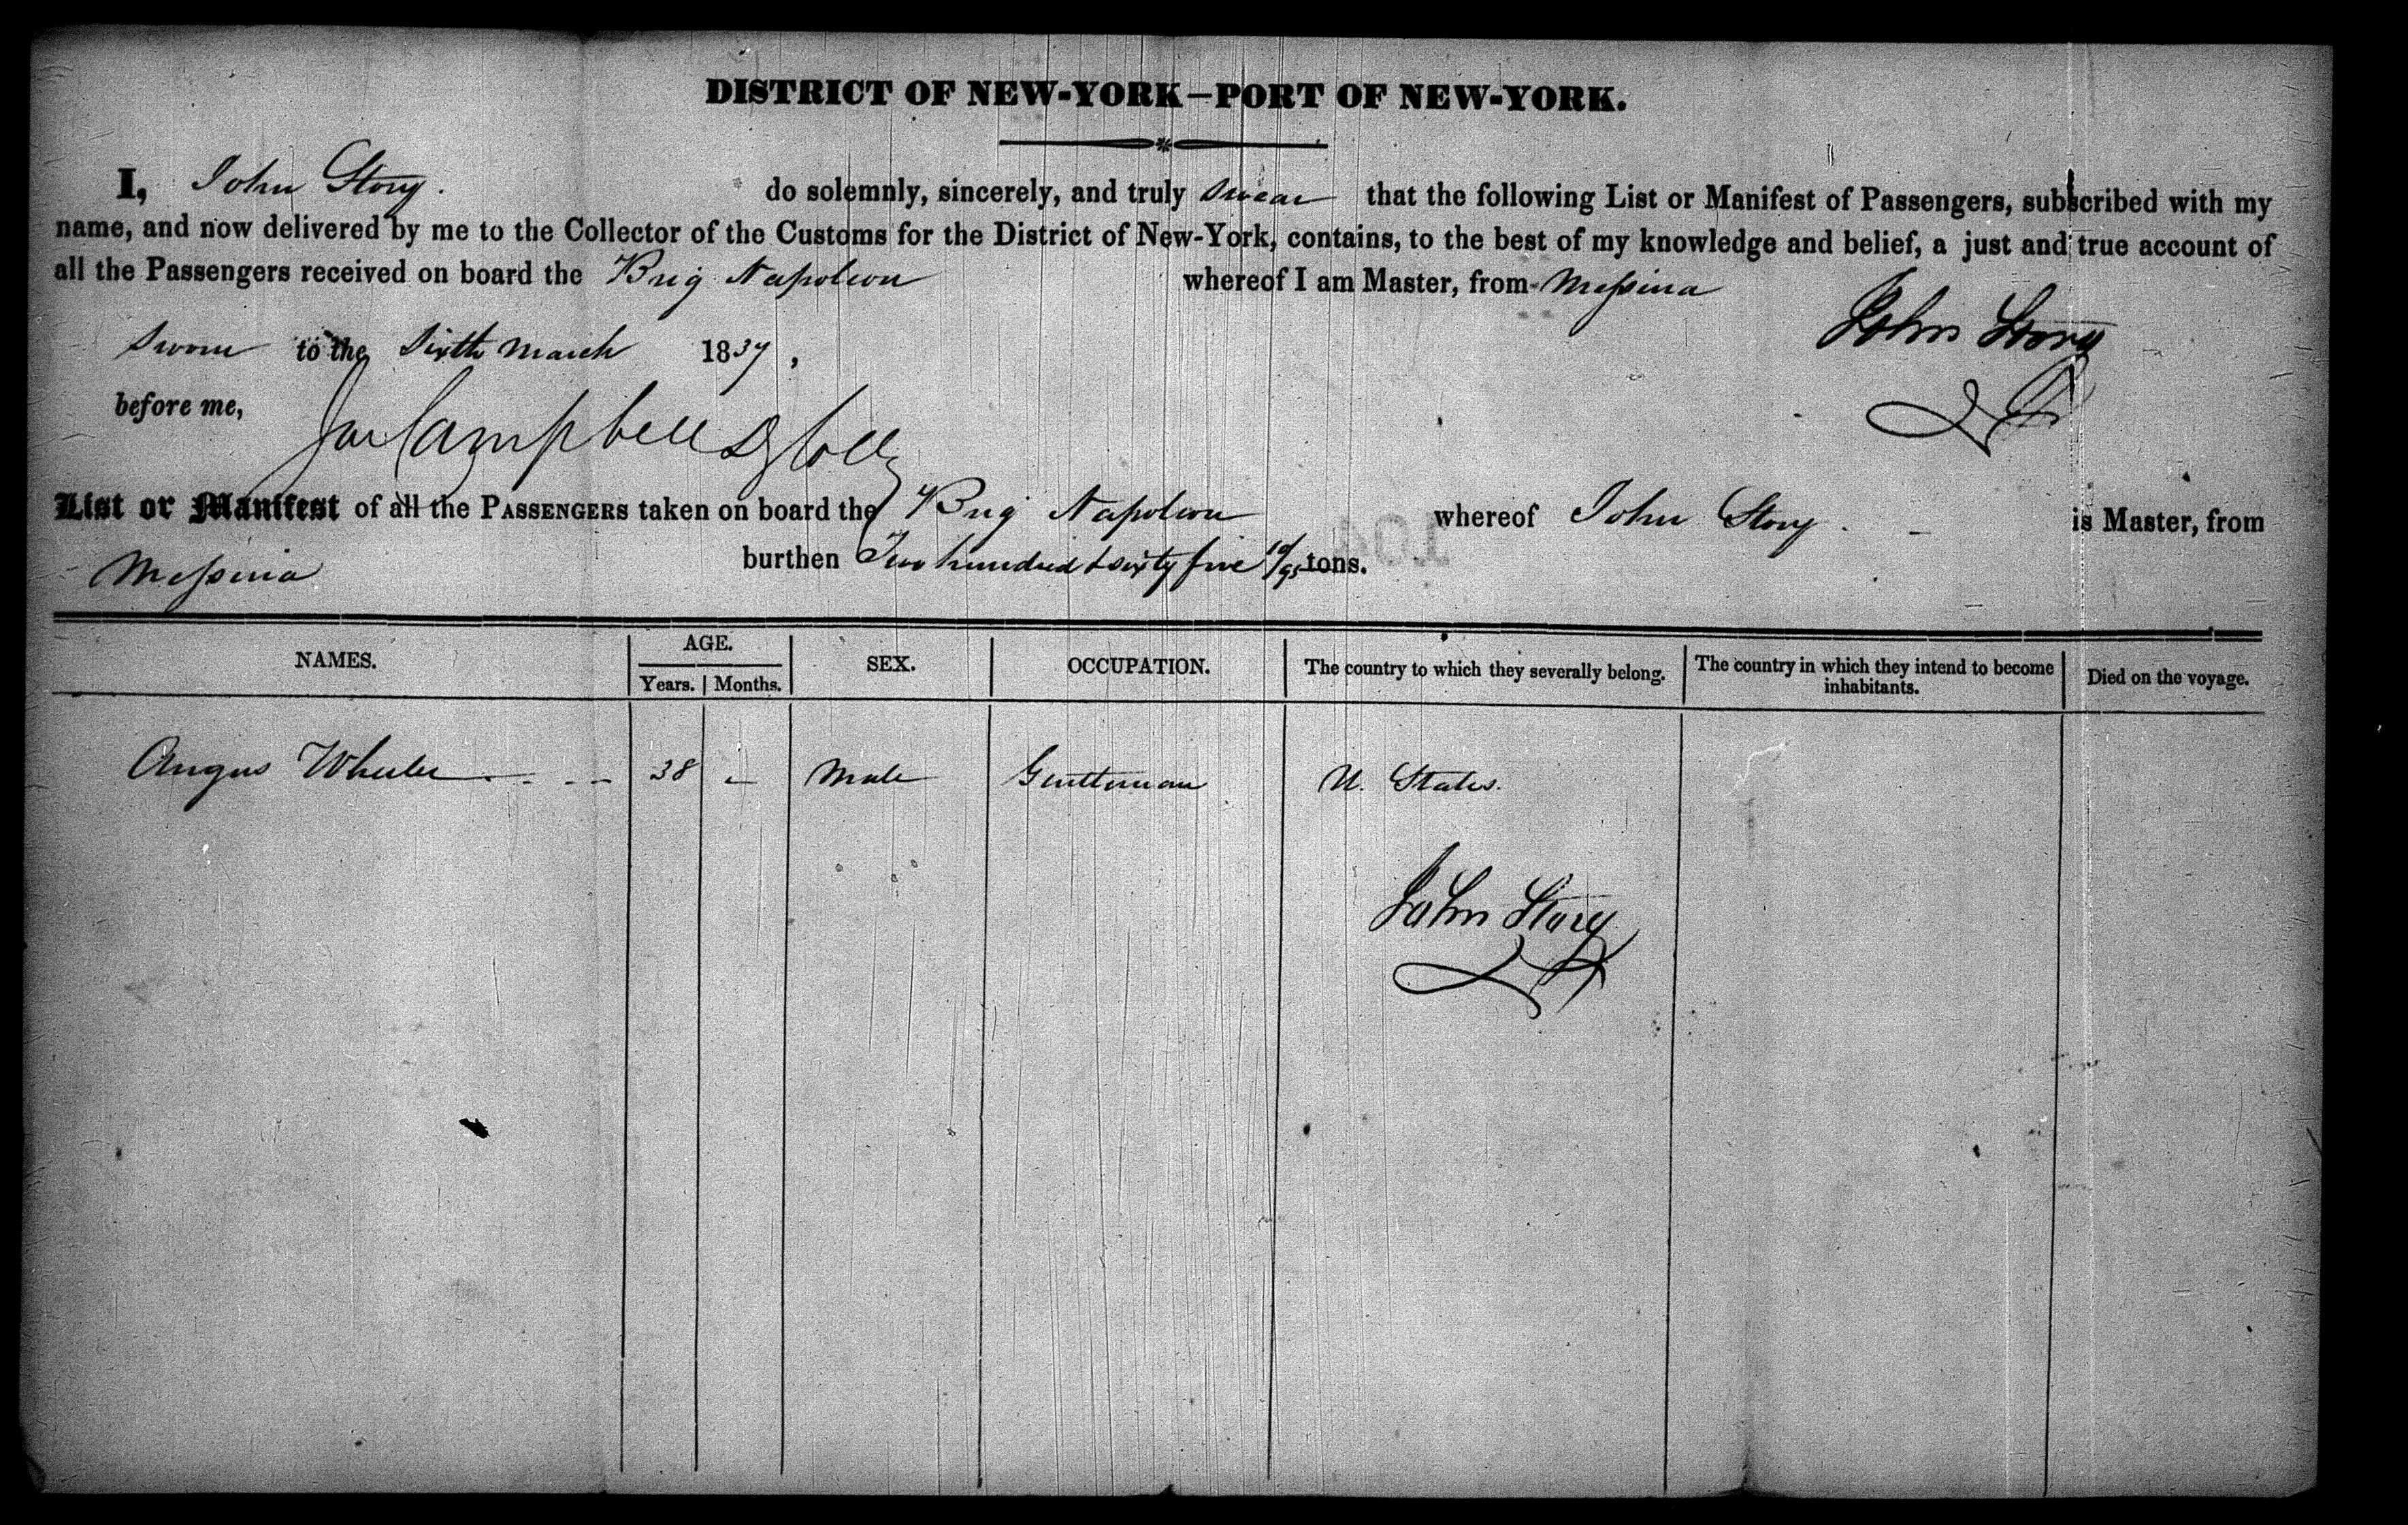 DISTRICT OF NEW-YORK—PORT OF NEW-YORK.
I, John Story. do solemnly, sincerely, and truly swear that the following List or Manifest of Passengers, subscribed with my
name, and now delivered by me to the Collector of the Customs for the District of New-York, contains, to the best of my knowledge and belief, a just and true account of
all the Passengers received on board the Brig Napoleon whereof I am Master, from Messina
Sworn to the Sixth March 1837,
John Story
before me,
Jas Campbell Dy Coll
List or Manifest of all the PASSENGERS taken on board the Brig Napoleon whereof John Story. is Master, from
Messina burthen Two hundred & sixty five 10/95 tons.
104
NAMES. AGE. Years. Months. SEX. OCCUPATION. The country to which they severally belong. The country in which they intend to become inhabitants. Died on the voyage.
Angus Wheeler 38 - Male Gentleman U. States.
John Story